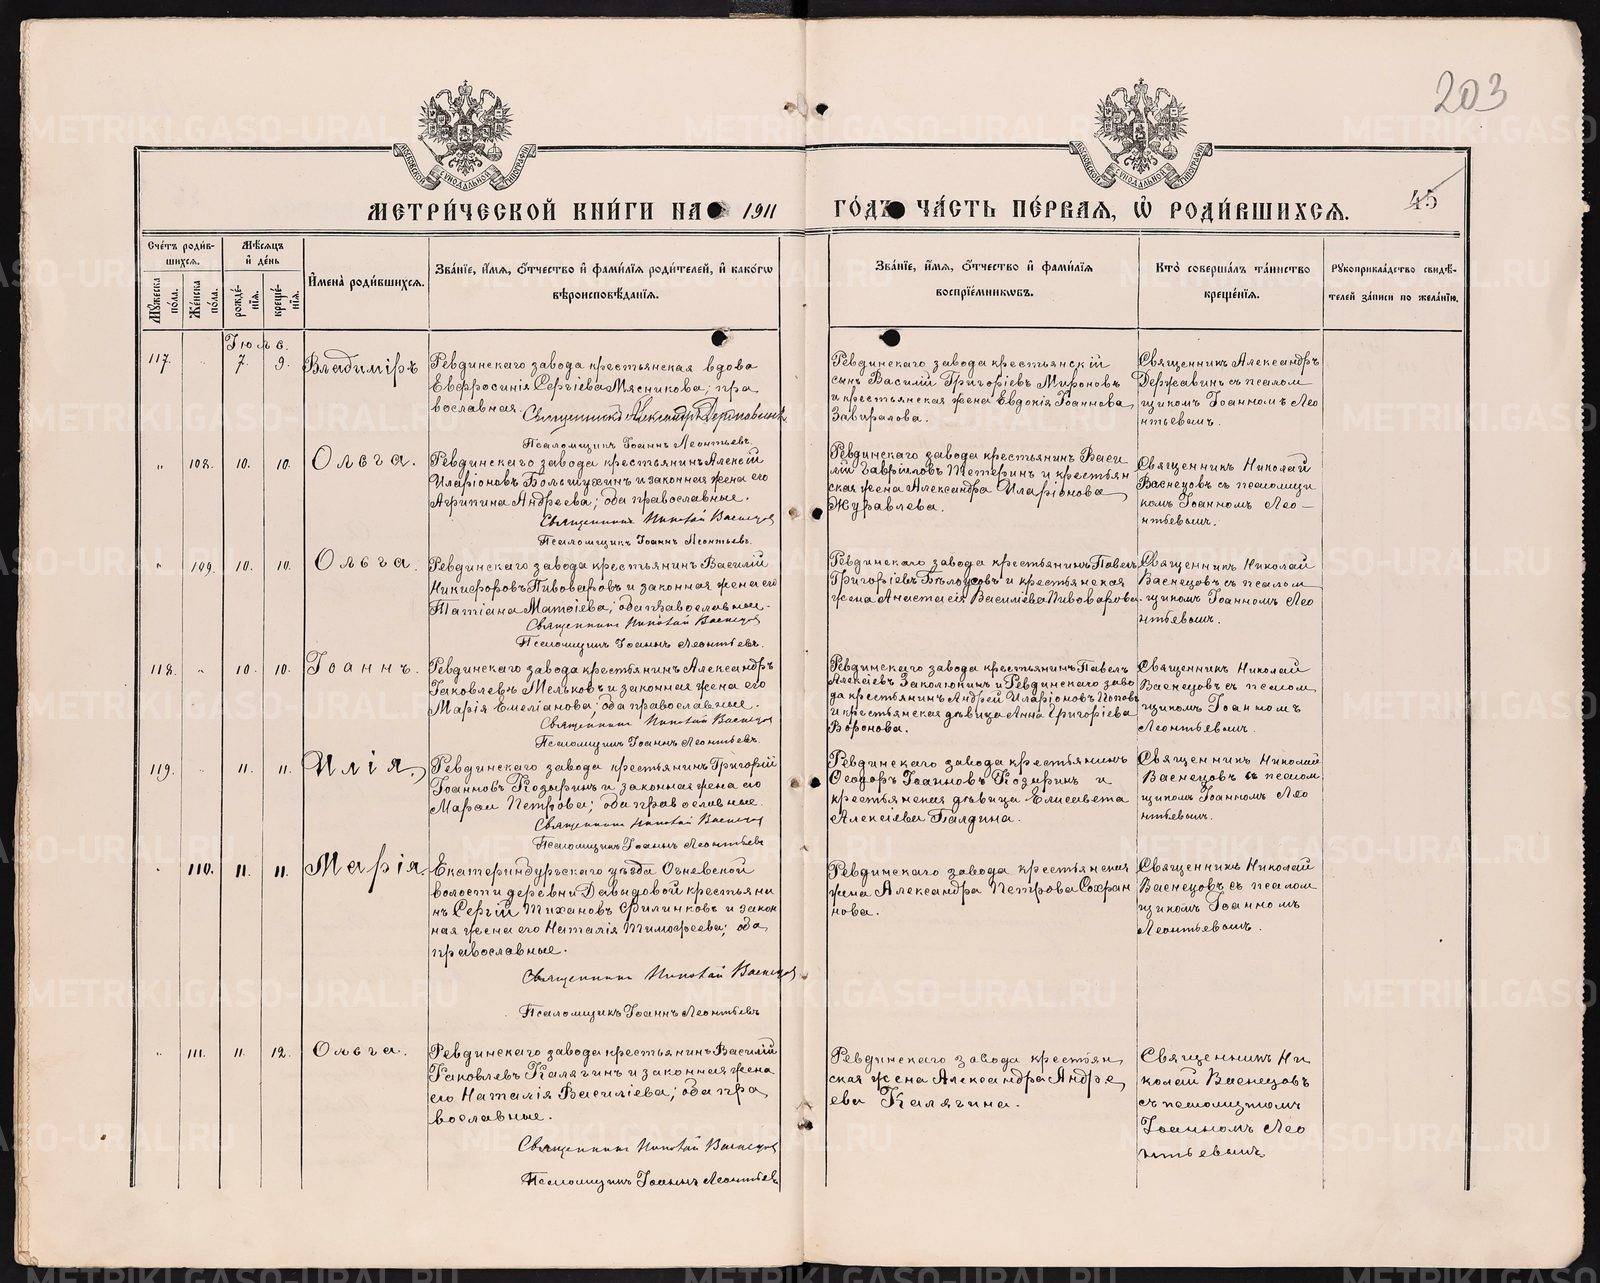 203
МЕТРИ́ЧЕСКОЙ КНИ́ГИ НА 1911 ГО́ДЪ ЧА́СТЬ ПЕ́РВАЯ, Ѽ РОДИ́ВШИХСЯ.
45
Сче́тъ роди́в-
шихся.
Му́жеска по́ла.
Же́нска по́ла.
Мѣ́сяцъ
и҆ де́нь
рожде́-
нїя.
креще́-
нїя.
И҆мена̀ роди́вшихся.
Зва́нїе, и҆́мя, ѻ҆́тчество и҆ фами́лїя роди́телей, и҆ како́гѡ
вѣроисповѣ́данїя.
Зва́нїе, и҆́мя, ѻ҆́тчество и҆ фами́лїя
воспрїе́мникѡвъ.
Кто̀ соверша́лъ та́инство
креще́нїя.
Рукоприкла́дство свидѣ́-
телей за́писи по жела́нїю.
Іюль.
117. 7. 9. Владиміръ
Ревдинскаго завода крестьянская вдова
Евфросинія Сергіева Мясникова; пра
вославная.
Священникъ Александръ Державинъ
Псаломщикъ Іоаннъ Леонтьевъ.
Ревдинскаго завода крестьянскій
сынъ Василій Григоріевъ Мироновъ
и крестьянская жена Евдокія Іоаннова
Завиралова.
Священникъ Александръ
Державинъ съ псалом
щикомъ Іоанномъ Лео
нтьевымъ.
" 108. 10. 10. Ольга.
Ревдинскаго завода крестьянинъ Алексій
Иларіоновъ Большухинъ и законная жена его
Агрипина Андреева; оба православные.
Священникъ Николай Васнецов
Псаломщикъ Іоаннъ Леонтьевъ.
Ревдинскаго завода крестьянинъ Васи
лій Гавріиловъ Тетеринъ и крестьян
ская жена Александра Иларіонова
Журавлева.
Священникъ Николай
Васнецовъ съ псаломщи
комъ Іоанномъ Лео-
нтьевымъ.
" 109. 10. 10. Ольга.
Ревдинскаго завода крестьянинъ Василій
Никифоровъ Пивоваровъ и законная жена его
Татіана Матѳіева; оба православные.
Священникъ Николай Васнецов
Псаломщикъ Іоаннъ Леонтьевъ.
Ревдинскаго завода крестьянинъ Павелъ
Григоріевъ Бѣлоусовъ и крестьянская
жена Анастасія Василіева Пивоварова.
Священникъ Николай
Васнецовъ съ псалом
щикомъ Іоанномъ Лео
нтьевымъ.
118. " 10. 10. Іоаннъ.
Ревдинскаго завода крестьянинъ Александръ
Іаковлевъ Мельковъ и законная жена его
Марія Емеліанова; оба православные.
Священникъ Николай Васнецов
Псаломщикъ Іоаннъ Леонтьевъ.
Ревдинскаго завода крестьянинъ Павелъ
Алексіевъ Заколюкинъ и Ревдинскаго заво
да крестьянинъ Андрей Иларіоновъ Поповъ
и крестьянская дѣвица Анна Григоріева
Воронова.
Священникъ Николай
Васнецовъ съ псалом
щикомъ Іоанномъ
Леонтьевымъ.
119. " 11. 11. Илія.
Ревдинскаго завода крестьянинъ Григорій
Іоанновъ Козыринъ и законная жена его
Марѳа Петрова; оба православные.
Священникъ Николай Васнецов
Псаломщикъ Іоаннъ Леонтьевъ
Ревдинскаго завода крестьянинъ
Ѳеодоръ Іоанновъ Козыринъ и
крестьянская дѣвица Елисавета
Алексіева Балдина.
Священникъ Николай
Васнецовъ съ псалом
щикомъ Іоанномъ Лео
нтьевымъ.
" 110. 11. 11. Марія.
Екатеринбургскаго уѣзда Огневской
волости деревни Давыдовой крестьяни
нъ Сергій Тихановъ Филинковъ и закон
ная жена его Наталія Тимофеева; оба
православные.
Священникъ Николай Васнецов
Псаломщикъ Іоаннъ Леонтьевъ
Ревдинскаго завода крестьянская
жена Александра Петрова Сохран
нова.
Священникъ Николай
Васнецовъ съ псалом
щикомъ Іоанномъ
Леонтьевымъ.
" 111. 11. 12. Ольга.
Ревдинскаго завода крестьянинъ Василій
Іаковлевъ Калягинъ и законная жена
его Наталія Василіева; оба пра
вославные.
Священникъ Николай Васнецов
Псаломщикъ Іоаннъ Леонтьев
Ревдинскаго завода крестьян
ская жена Александра Андре
ева Калягина.
Священникъ Ни
колай Васнецовъ
съ псаломщикомъ
Іоанномъ Лео
нтьевымъ